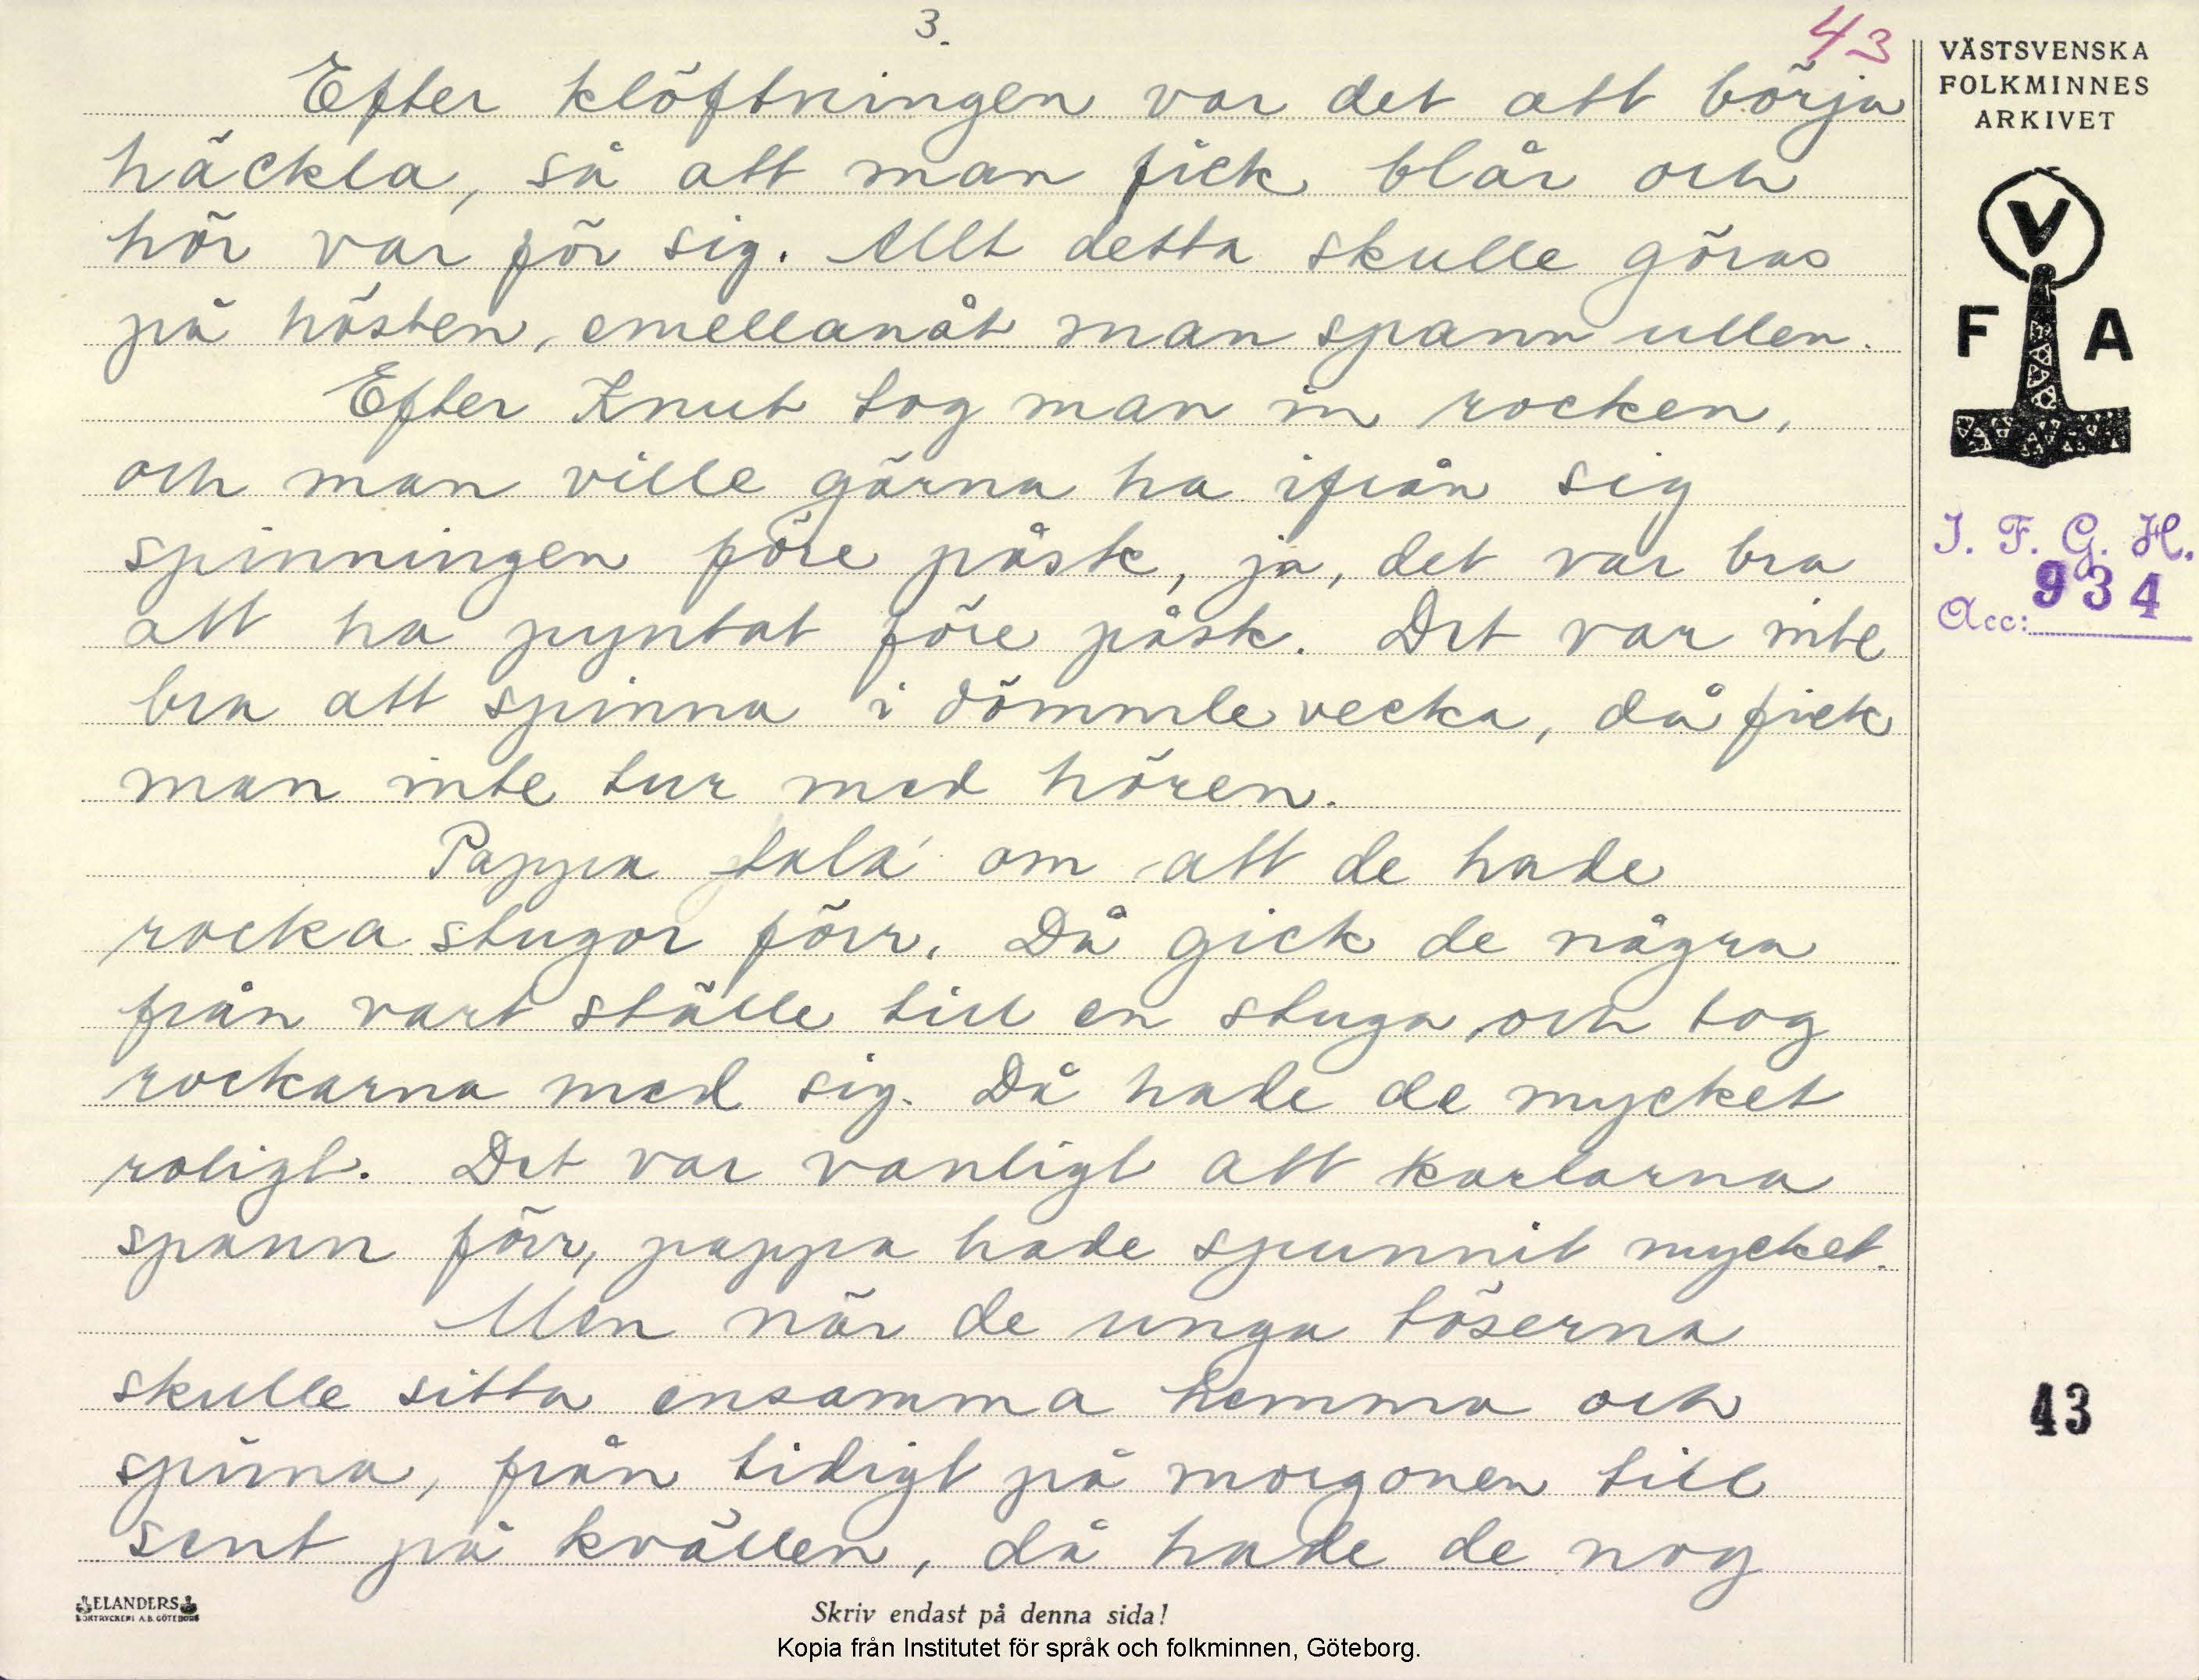 3.
43
Efter klöftningen var det att börja
häckla, så att man fick blår och
hör var för sig. Allt detta skulle göras
på hösten, emellanåt man spann ullen.
Efter Knut tog man in rocken,
och man ville gärna ha ifrån sig
spinningen före påsk, ja, det var bra
att ha pyntat före påsk. Det var inte
bra att spinna i dömmle vecka, då fick
man inte tur med hören.
Pappa tala' om att de hade
rocka stugor förr. Då gick de några
från vart ställe till en stuga och tog
rockarna med sig. Då hade de mycket
roligt. Det var vanligt att karlarna
spann förr, pappa hade spunnit mycket.
Men när de unga töserna
skulle sitta ensamma hemma och
spinna, från tidigt på morgonen till
sent på kvällen, då hade de nog
VÄSTSVENSKA
FOLKMINNES
ARKIVET
V
F A
I. F. G. H.
934
Acc:
43
ELANDERS
BOKTRYCKERI A.B. GÖTEBORG
Skriv endast på denna sida!
Kopia från Institutet för språk och folkminnen, Göteborg.